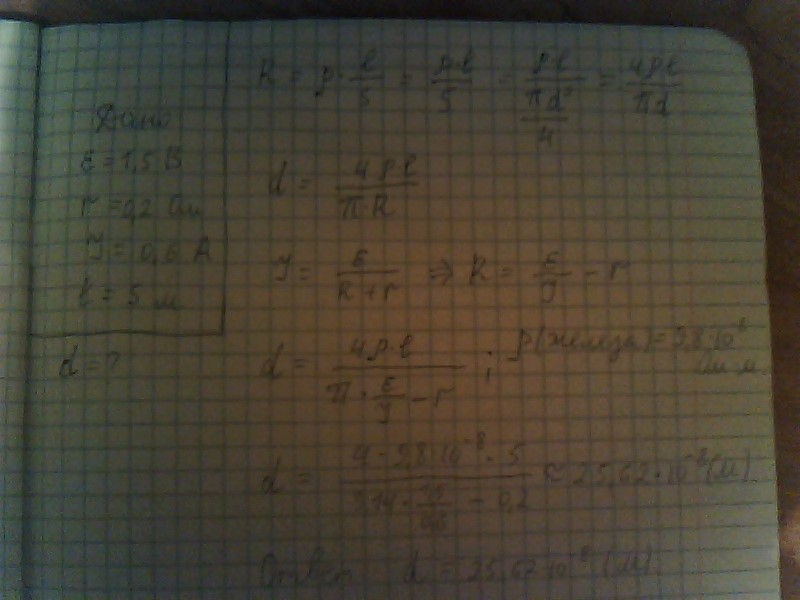 Дано
ε = 1,5 В
r = 0,2 Ом
J = 0,6 А
l = 5 м
d = ?
R = ρ · l/S = ρ·l/S = ρl/(πd²/4) = 4ρl/πd
d = 4ρl/π·R
J = ε/(R + r) ⇒ R = ε/J − r
d = 4ρ·l/(π · ε/J − r) ; ρ(железа) = 9,8·10⁻⁸ Ом·м
d = 4 · 9,8·10⁻⁸ · 5/(3,14 · 1,5/0,6 − 0,2) ≈ 25,62·10⁻⁸ (м)
Ответ d = 25,62·10⁻⁸ (м)